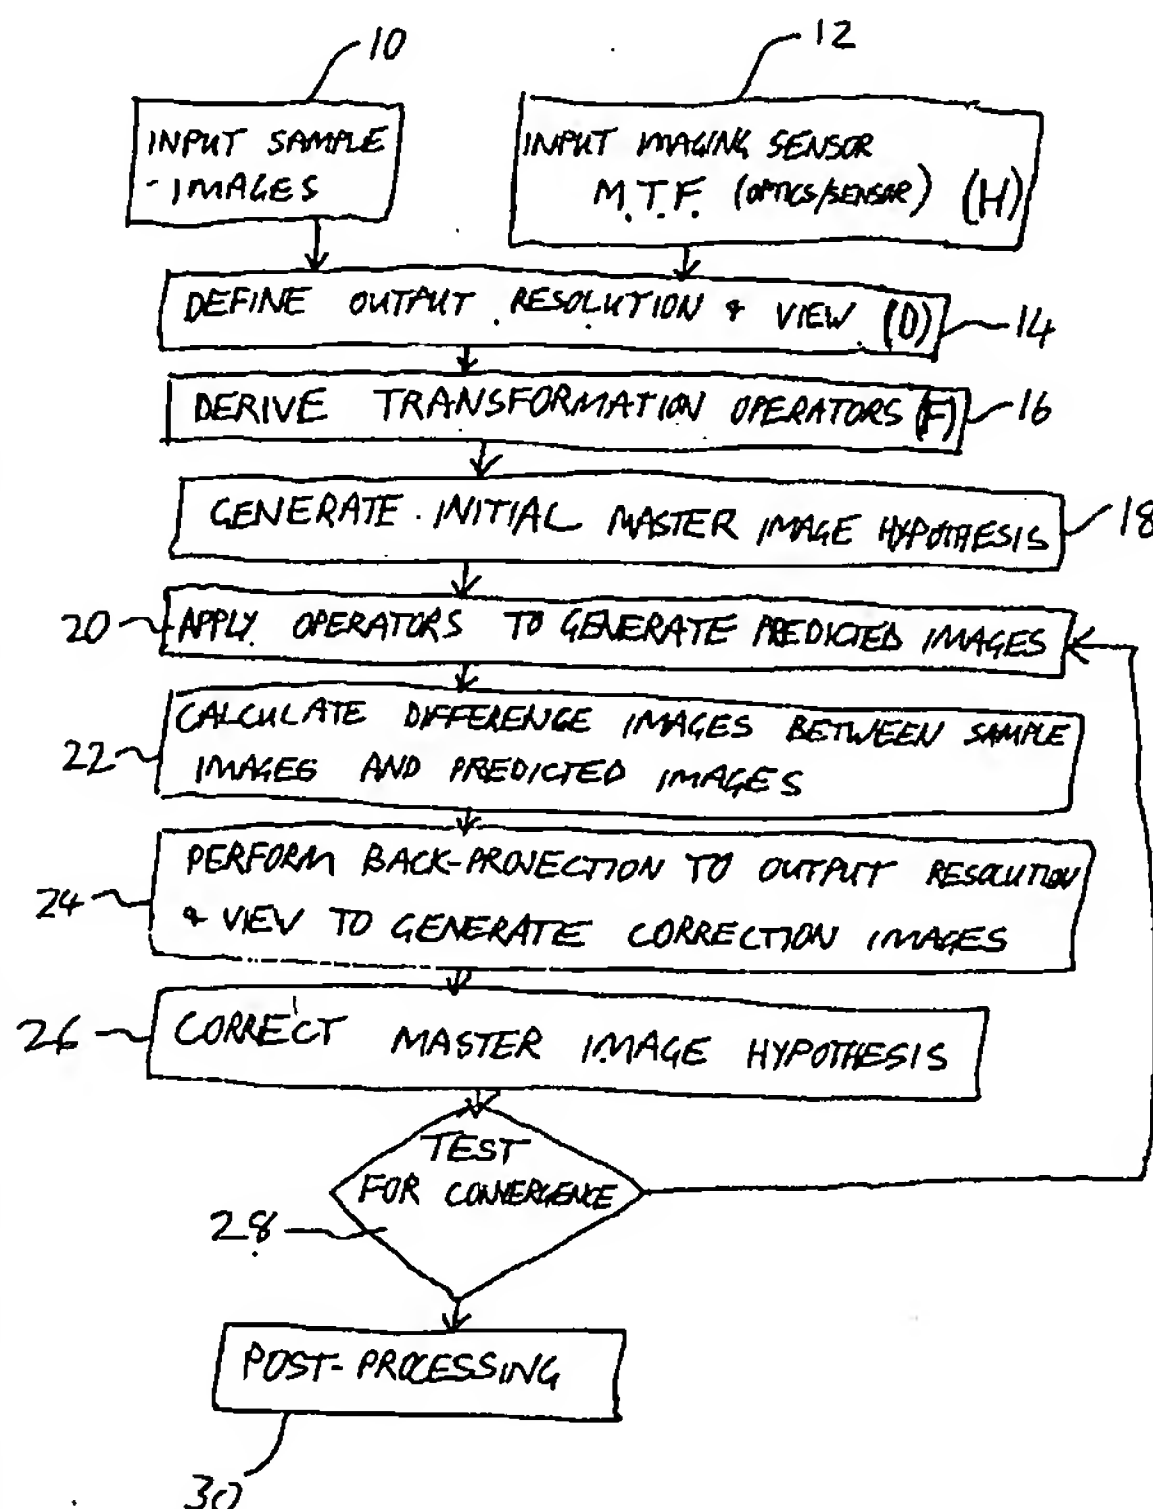 10
12
INPUT SAMPLE
- IMAGES
INPUT IMAGING SENSOR
M.T.F. (OPTICS/SENSOR) (H)
DEFINE OUTPUT RESOLUTION & VIEW (D)
14
DERIVE TRANSFORMATION OPERATORS (F)
16
GENERATE INITIAL MASTER IMAGE HYPOTHESIS
18
20
APPLY OPERATORS TO GENERATE PREDICTED IMAGES
CALCULATE DIFFERENCE IMAGES BETWEEN SAMPLE
22
IMAGES AND PREDICTED IMAGES
PERFORM BACK-PROJECTION TO OUTPUT RESOLUTION
24
& VIEW TO GENERATE CORRECTION IMAGES
26
CORRECT MASTER IMAGE HYPOTHESIS
TEST
FOR CONVERGENCE
28
POST-PROCESSING
30